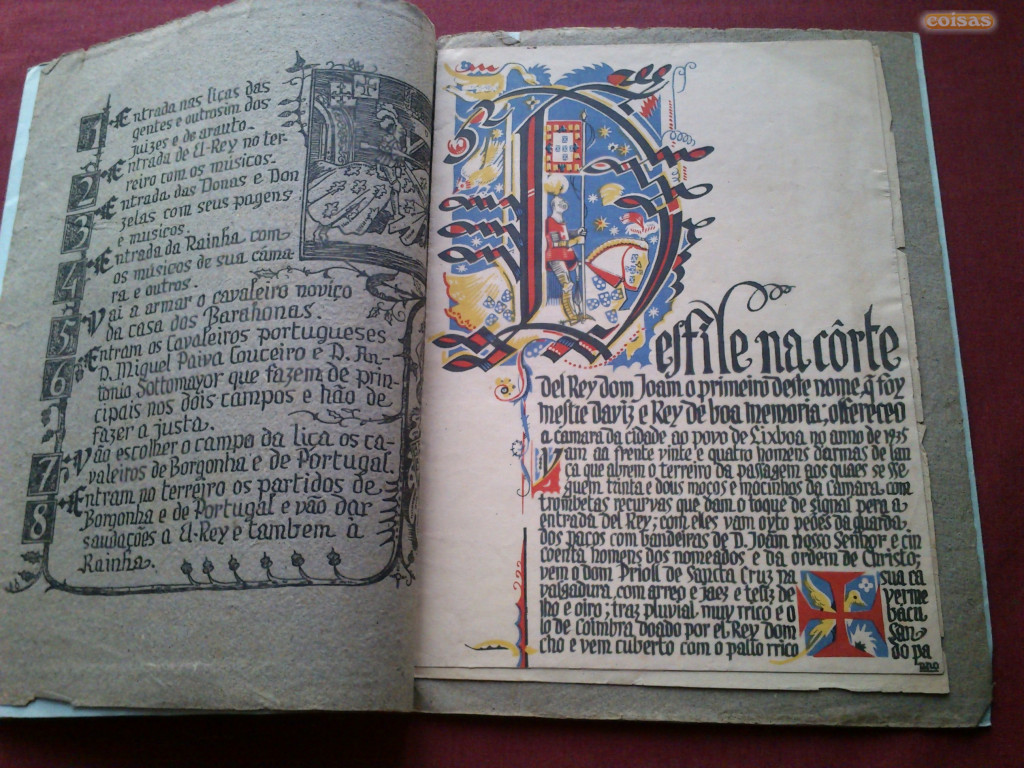 coisas
1 Entrada nas liças das
gentes e outrosim dos
juizes e de arauto.
2 Entrada de El-Rey no ter-
reiro com os músicos.
3 Entrada das Donas e Don
zelas com seus pagens
e musicos.
4 Entrada da Rainha com
os músicos de sua câma-
ra e outros.
5 Vai a armar o cavaleiro noviço
da casa dos Barahonas.
6 Entram os Cavaleiros portugueses
D. Miguel Paiva Couceiro e D. An-
tonio Sottomayor que fazem de prin-
cipais nos dois campos e hão de
fazer a justa.
7 Vão escolher o campo da liça os ca-
valeiros de Borgonha e de Portugal.
8 Entram no terreiro os partidos de
Borgonha e de Portugal e vão dar
saudações a El-Rey e tambem a
Rainha.
Desfile na côrte
del Rey dom Joam o primeiro deste nome q̃ foy
mestre daviz e Rey de boa memoria; offereceo
a câmara da cidade ao povo de Lixboa no anno de 1935
Vam aa frente vinte e quatro homens darmas de lan
ça que abrem o terreiro da passagem aos quaes se sse
guem trinta e dous moços e mocinhos da câmara com
trombetas recurvas que dam o toque de signal pera a
entrada del Rey; com eles vam oyto peões da guarda
dos paços com bandeiras de D. Joam nosso Senhor e cin
coenta homens dos nomeados e da ordem de Christo;
vem o dom Prioll de Sancta Cruz na sua ca
valgadura com arreo e jaez e teliz de verme
lho e oiro; traz pluvial muy rrico e o bacu
lo de Coimbra doado por el Rey dom San
cho e vem cuberto com o pallo rrico do pa
nno